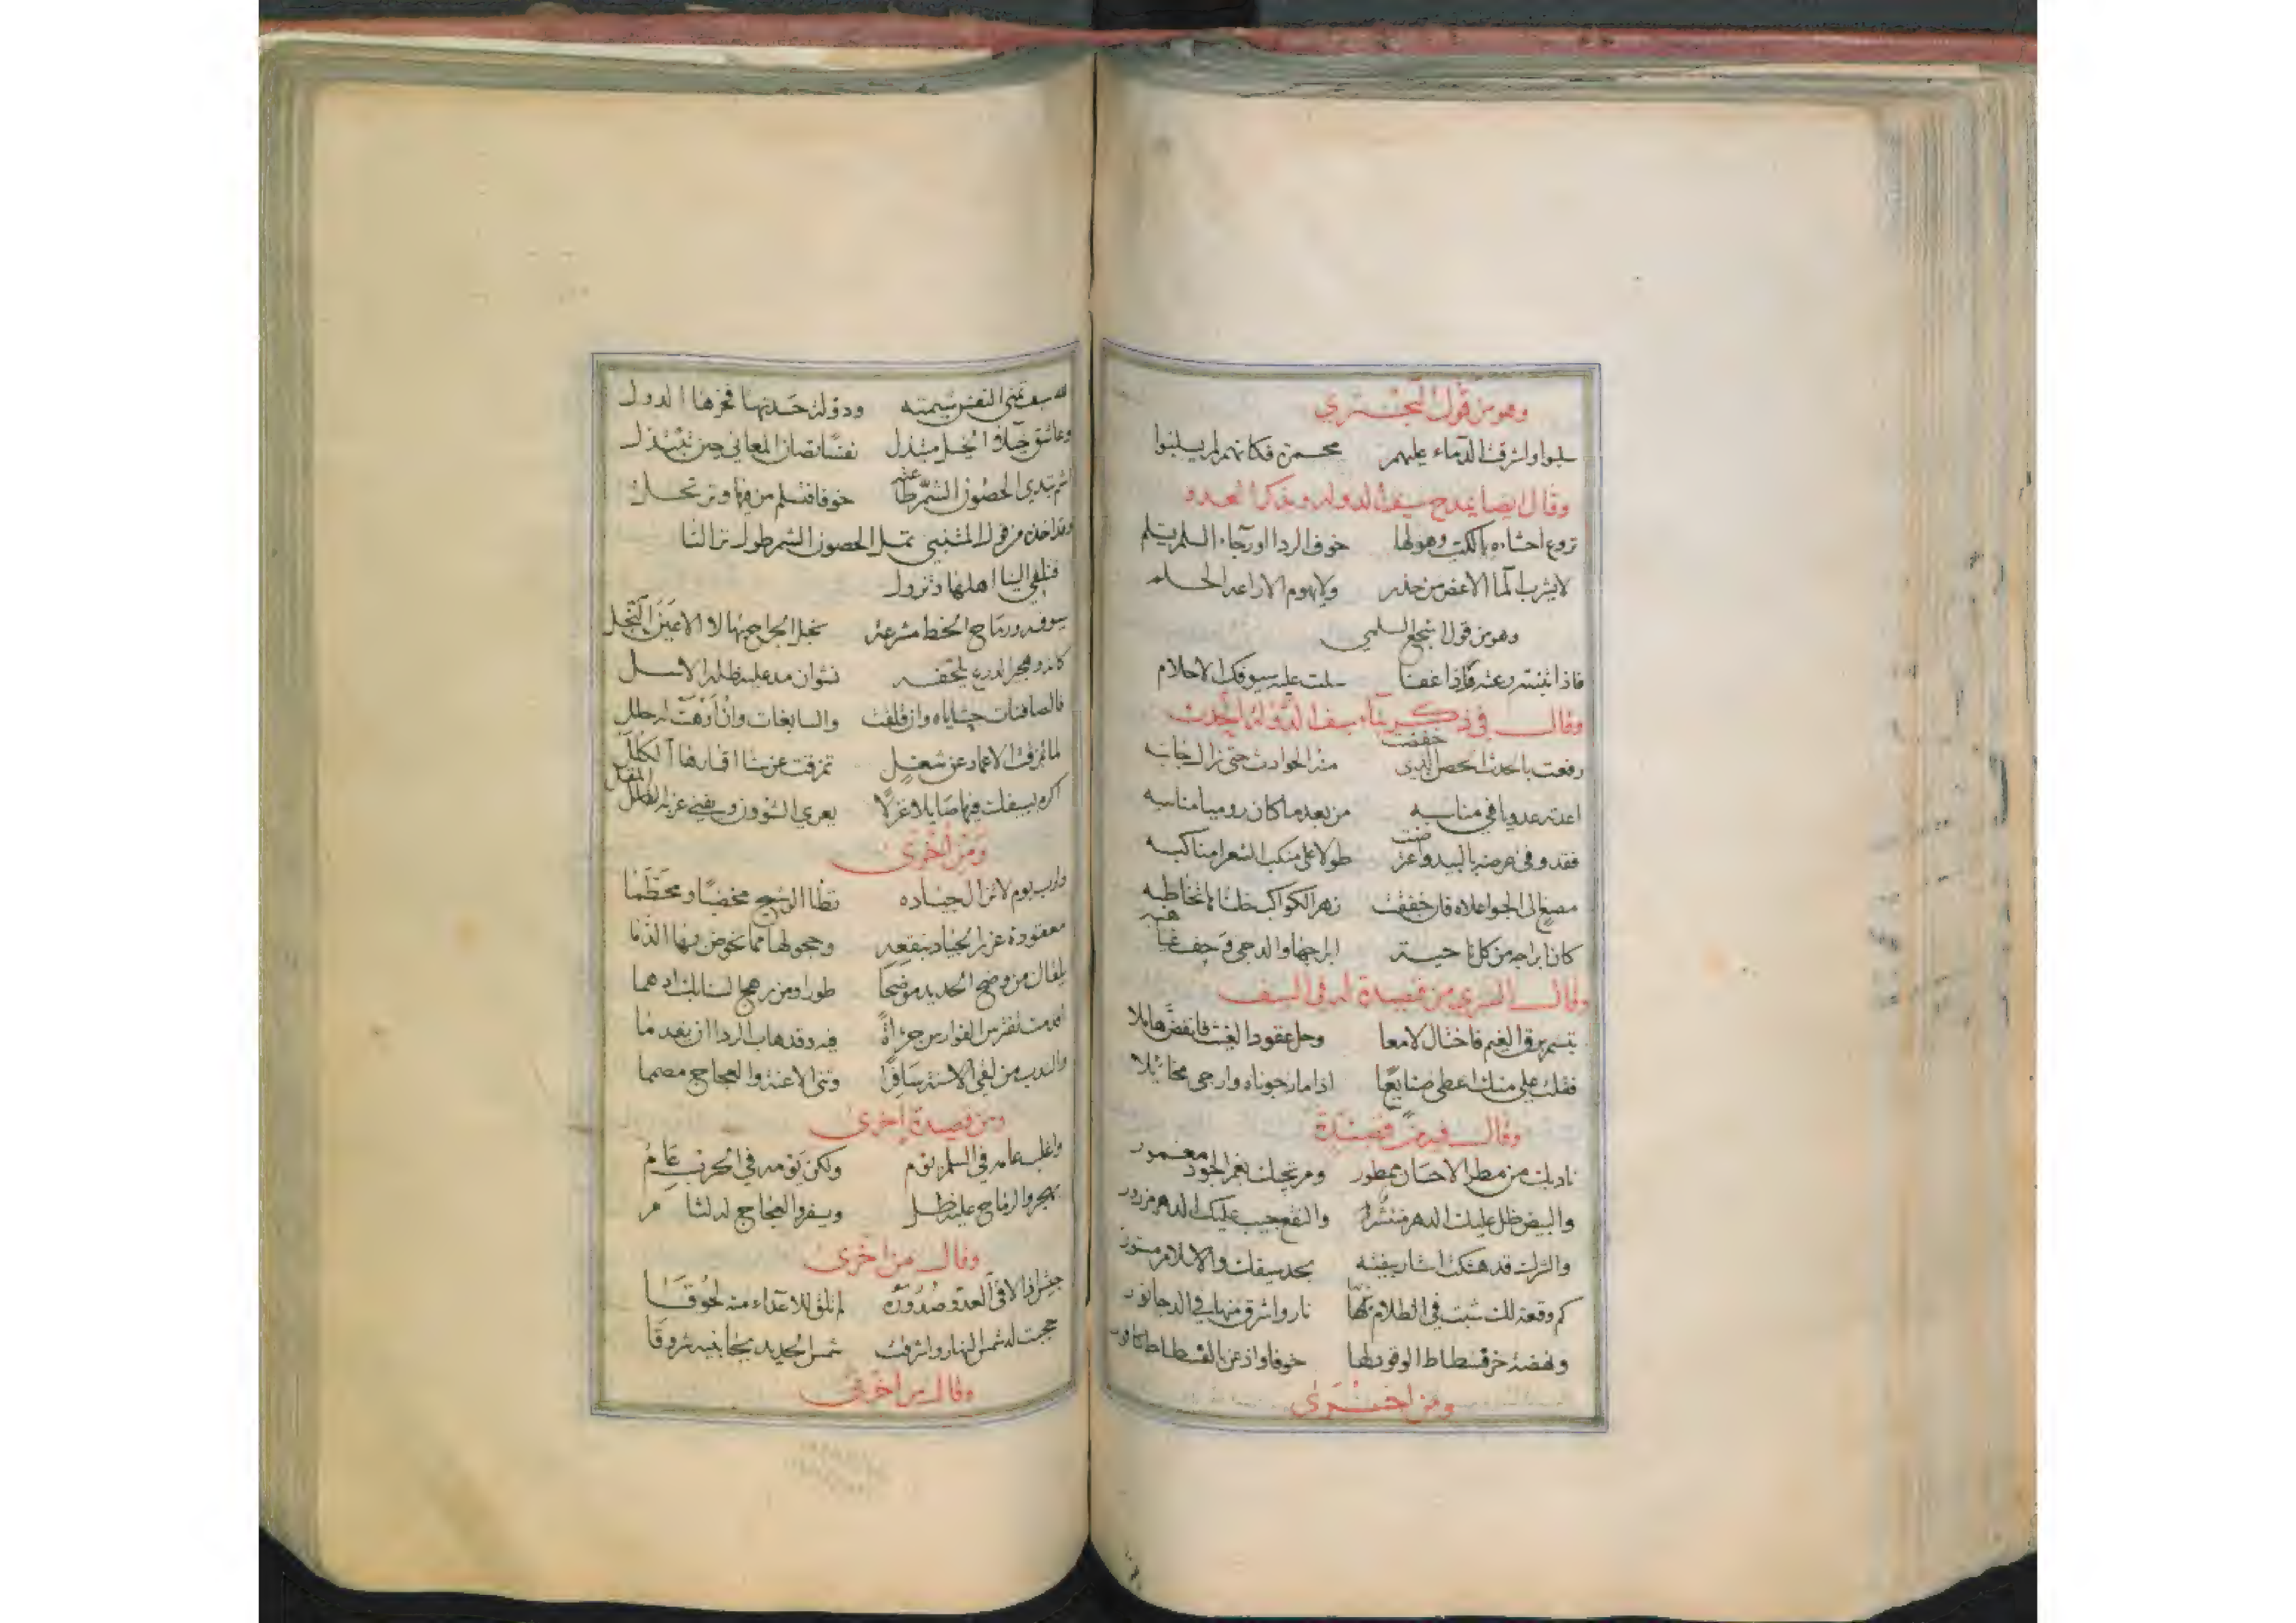 وهو من قول البحتري
سلبوا واشرقت الدماء عليهم محمرة فكانهم لم يسلبوا
وقال ايضا يمدح سيف الدولة ويذكر العدو
تروع احشاءه بالكتب وهولها خوف الردا اورجاء السلم يستلم
لا يشرب الما الا غص من حذر ولا يهوم الا راعه الحلم
وهو من قول اشجع السلمي
فاذا تنبه رعته فاذا غفا سلت عليه سيوفك الاحلام
وقال في ذكر بناء سيف الدولة الحدث
رفعت بالحدث الحصن الذي خفضت منه الحوادث حتى زال جانبه
اعدته عدويا في مناسبه من بعد ما كان روميا مناسبه
فقد وفى عرضه بالبيد واعترضت طولا على منكب الشعرا مناكبه
مصغ الى الجو اعلاه فان خفقت زهر الكواكب خلناها تخاطبه
كان ابراجه من كل ناحية ابراجها والدجى وحف غياهبه
وقال السري من قصيدة له في السيف
تبسم برق الغيم فاختال لامعا وحل عقود الغيث فانفض هاملا
فقلت علي منك اعطى صنايعا اذا ما رجوناه وارجى مخائلا
وقال فيه من قصيدة
ناديك من مطر الاحسان ممطور ومرتجيك بغمر الجود مغمور
والبيض ظل عليك الدهر منتشر والنقع جيب عليك الدهر مزرور
والشرك قد هتكت استار بيضته بحد سيفك والاسلام مستور
كم وقعة لك شبت في الظلام لها نار واشرق منها في الدجا نور
ونهضة خر قسطاط الوقود لها خوفا واذعن بالفسطاط كافور
ومن اخرى
لله سيف تمنى السيف شيمته ودولة حسدتها فخرها الدول
وعاشق خيلاء الخيل مبتذل نفسا تصان المعالي حين تبتذل
اشم تبدي الحصون الشم طاعته خوفا فتسلم من فيها وترتحل
وقد اخذه من قول المتنبي تمل الحصون الشم طول نزالنا
فتلقي الينا اهلها وتزول
سوفه ورماح الخط مشرعة نجل الجراح بها لا الاعين النجل
كانه وهجير الدرع يلحفه نشوان مد عليه ظله الاسل
فالصافنات حشاياه وان قلقت والسابغات وان اوهت له حلل
لما تمزقت الاغماد عن شعل تمزقت عن سنا اقمارها الكلل
اكرم بسيفك فيها صائلا غزلا يفري الشؤون ويثني غربه المقل
ومن اخرى
ولرب يوم لا تزال جياده تطأ الوشيج مخضبا ومحطما
معقودة غرر الجياد بنقعه وحجولها مما تخوض به الدما
يلقاك من وضح الحديد موضحا طورا ومن رهج السنابك ادهما
اقدمت تفترس الفوارس جرأة فيه وقد هاب الردا ان يقدما
والندب من لقي الاسنة سافرا وثنى الاعنة والعجاج مصمما
ومن قصيدة اخرى
واغلب عامه في السلم يوم ولكن يومه في الحرب عام
بهجير والرماح عليه ظل ويسفر والعجاج له لثام
وقال من اخرى
جيش اذا لاقى العدو صدوره لم تلق للاعداء منه لحوقا
حجبت له شمس النهار واشرقت شمس الحديد بجانبيه شروقا
وقال من اخرى